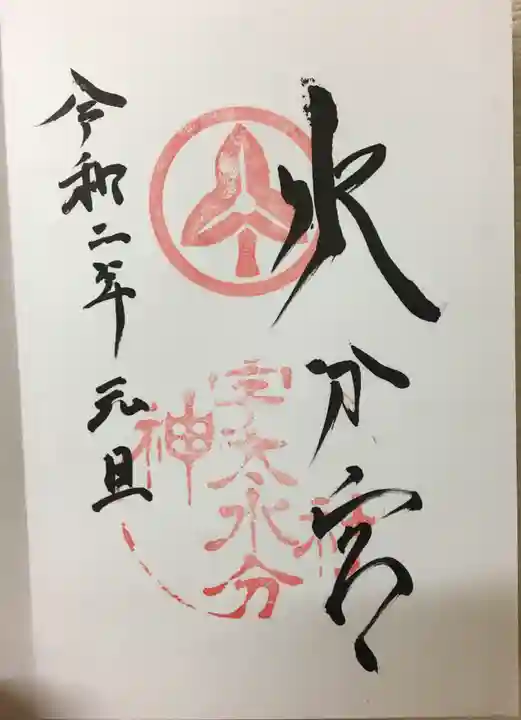 水分宮
宇太水分
神社
令和二年 元旦